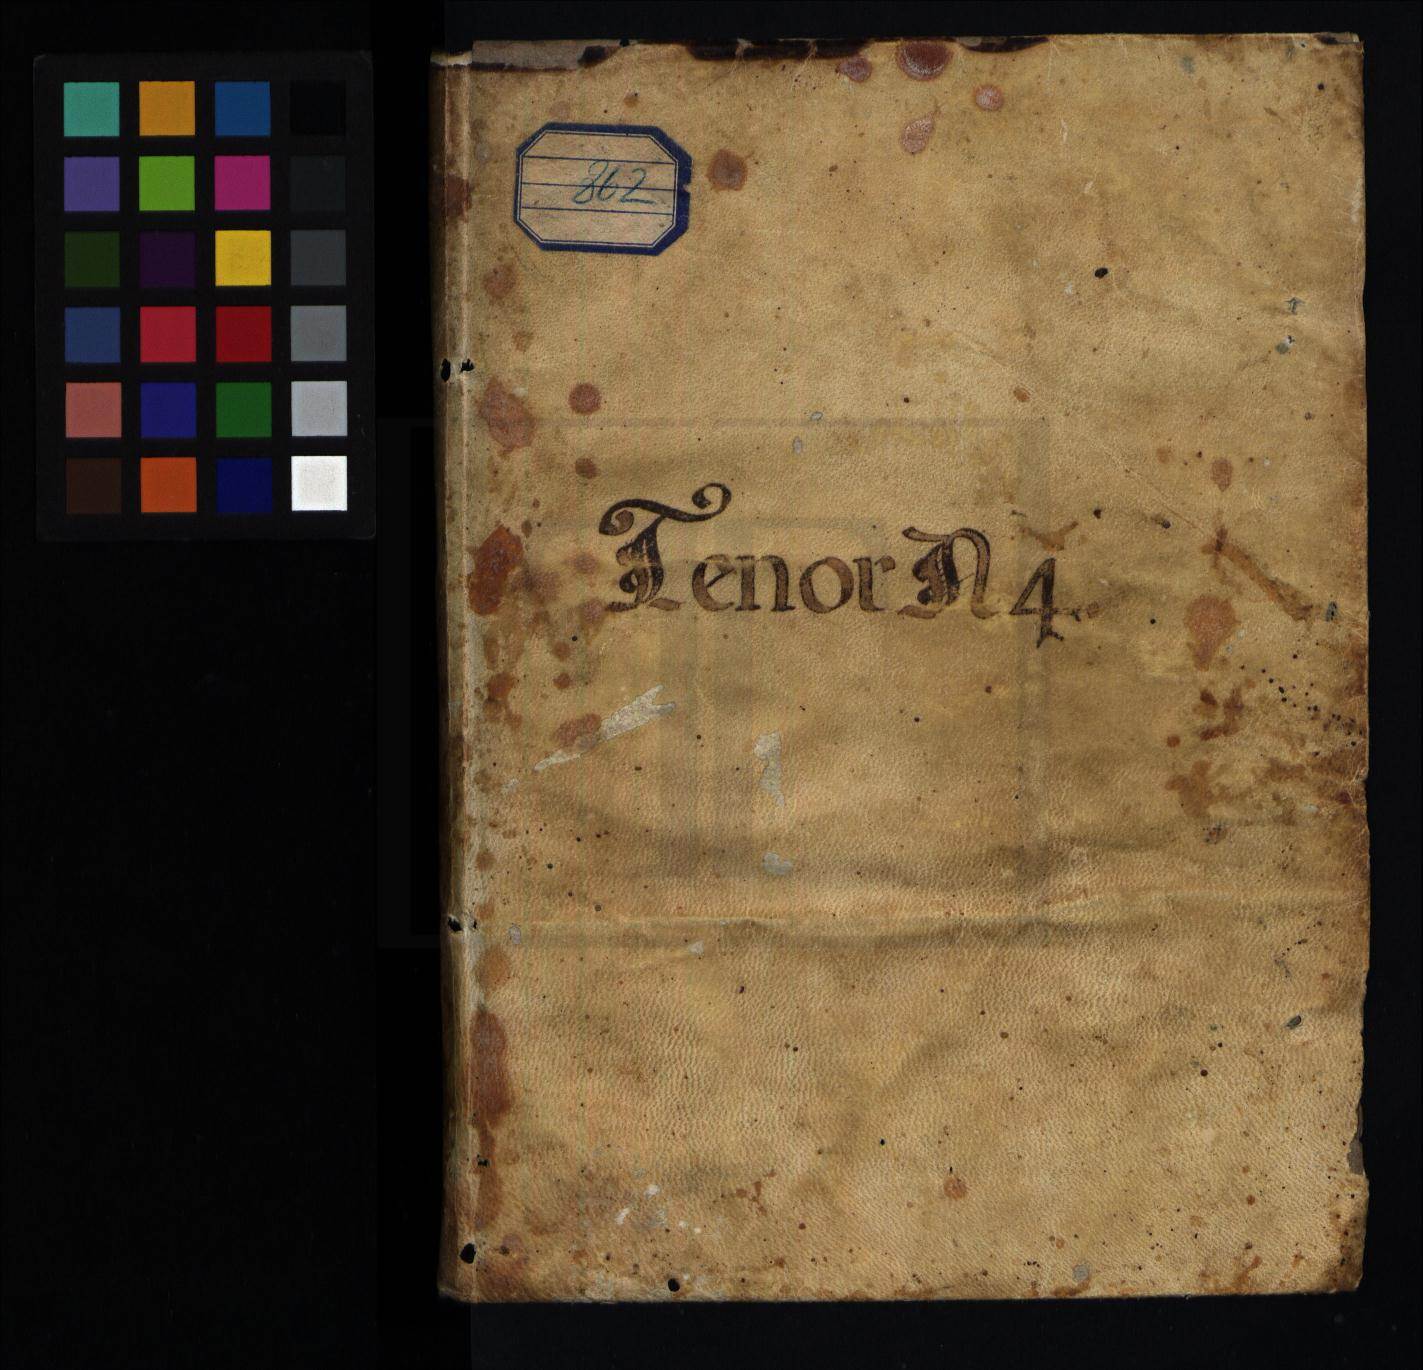 862
Tenor N 4.